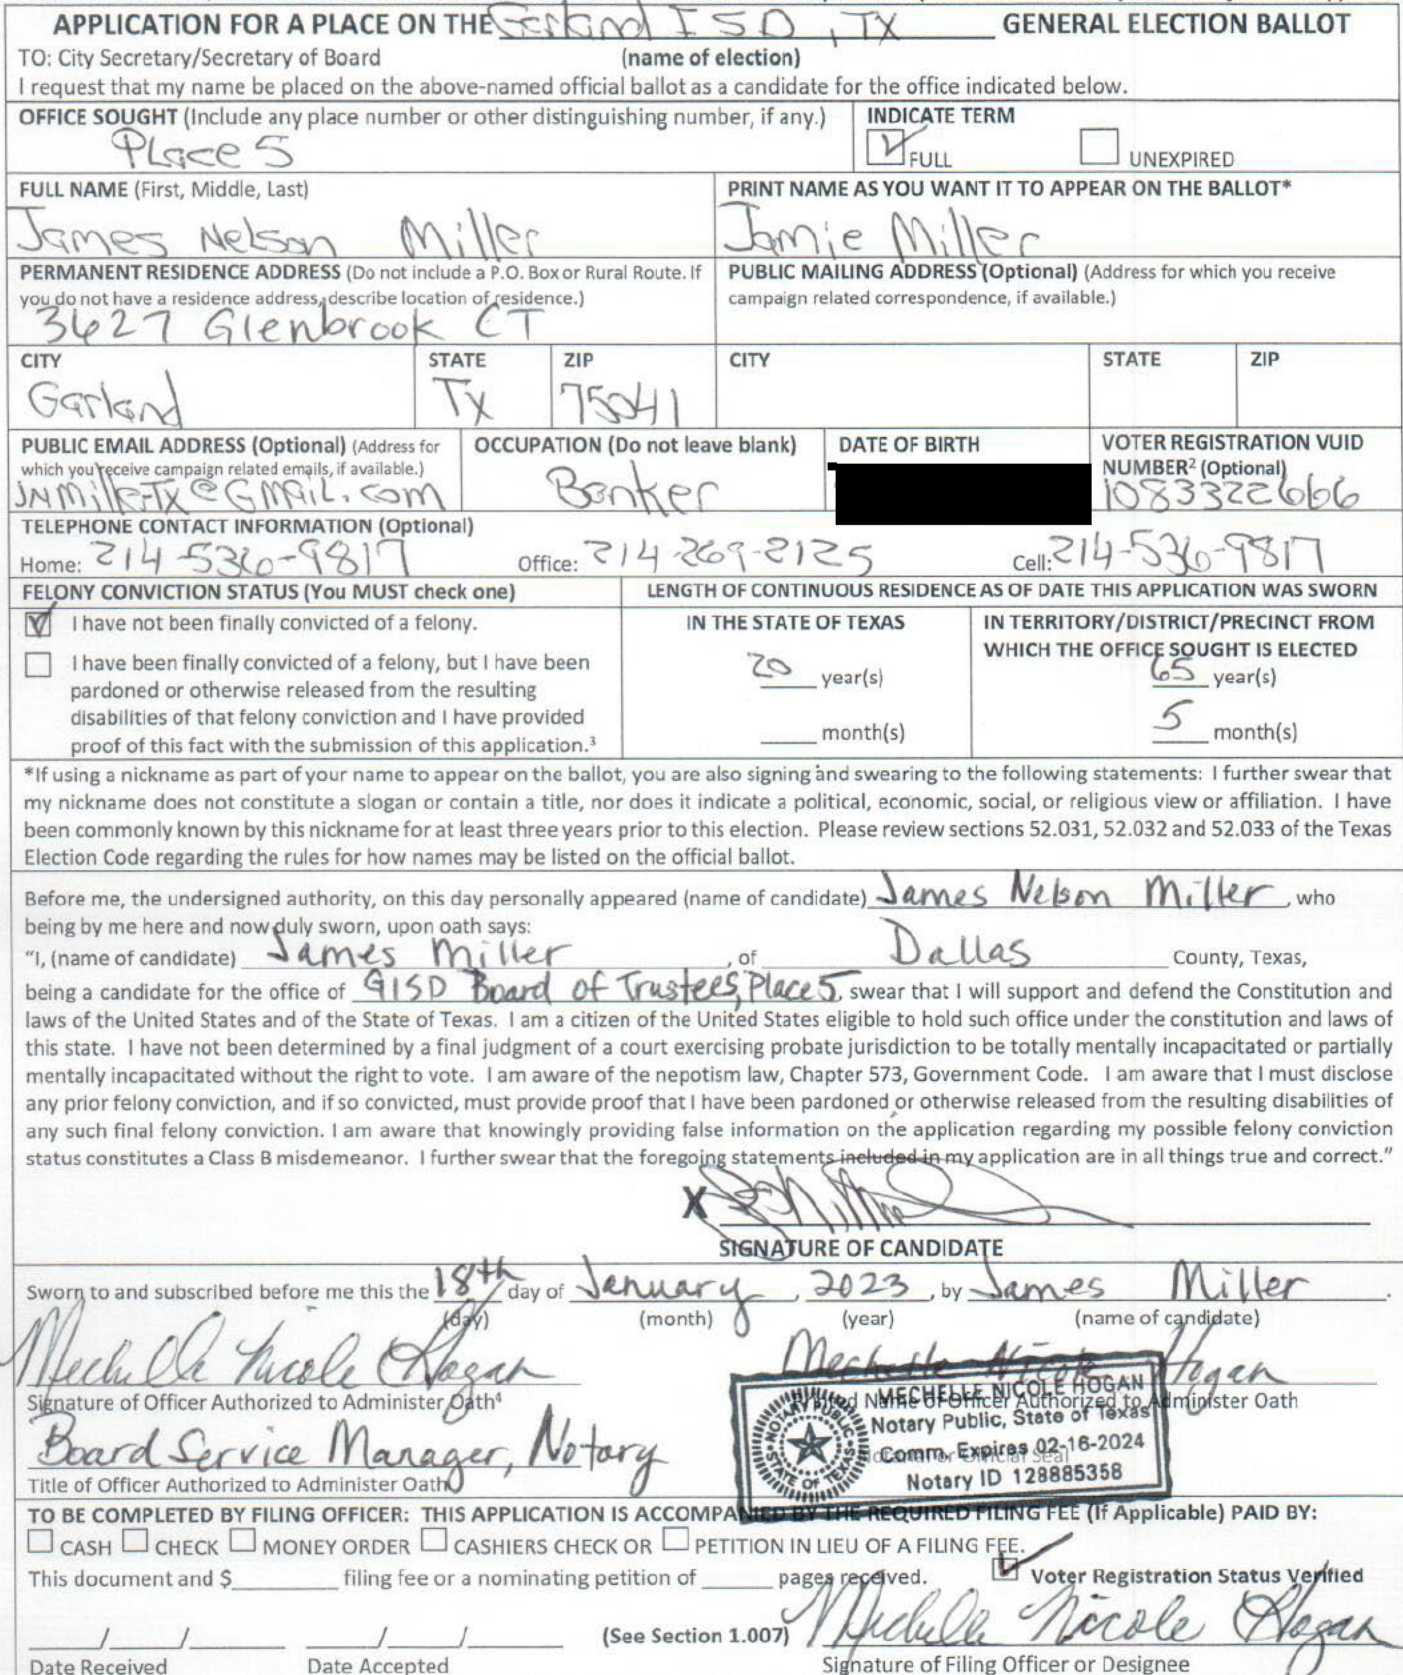 APPLICATION FOR A PLACE ON THE Garland ISD, TX GENERAL ELECTION BALLOT
TO: City Secretary/Secretary of Board (name of election)
I request that my name be placed on the above-named official ballot as a candidate for the office indicated below.
OFFICE SOUGHT (Include any place number or other distinguishing number, if any.) INDICATE TERM
Place 5 FULL UNEXPIRED
FULL NAME (First, Middle, Last) PRINT NAME AS YOU WANT IT TO APPEAR ON THE BALLOT*
James Nelson Miller Jamie Miller
PERMANENT RESIDENCE ADDRESS (Do not include a P.O. Box or Rural Route. If PUBLIC MAILING ADDRESS (Optional) (Address for which you receive
you do not have a residence address, describe location of residence.) campaign related correspondence, if available.)
3627 Glenbrook CT
CITY STATE ZIP CITY STATE ZIP
Garland Tx 75041
PUBLIC EMAIL ADDRESS (Optional) (Address for OCCUPATION (Do not leave blank) DATE OF BIRTH VOTER REGISTRATION VUID
which you receive campaign related emails, if available.) NUMBER² (Optional)
Banker 1083322666
TELEPHONE CONTACT INFORMATION (Optional)
Home: 214-536-9817 Office: 214-269-2125 Cell: 214-536-9817
FELONY CONVICTION STATUS (You MUST check one) LENGTH OF CONTINUOUS RESIDENCE AS OF DATE THIS APPLICATION WAS SWORN
I have not been finally convicted of a felony. IN THE STATE OF TEXAS IN TERRITORY/DISTRICT/PRECINCT FROM
WHICH THE OFFICE SOUGHT IS ELECTED
I have been finally convicted of a felony, but I have been 20 year(s) 65 year(s)
pardoned or otherwise released from the resulting
disabilities of that felony conviction and I have provided month(s) 5 month(s)
proof of this fact with the submission of this application.³
*If using a nickname as part of your name to appear on the ballot, you are also signing and swearing to the following statements: I further swear that
my nickname does not constitute a slogan or contain a title, nor does it indicate a political, economic, social, or religious view or affiliation. I have
been commonly known by this nickname for at least three years prior to this election. Please review sections 52.031, 52.032 and 52.033 of the Texas
Election Code regarding the rules for how names may be listed on the official ballot.
Before me, the undersigned authority, on this day personally appeared (name of candidate) James Nelson Miller, who
being by me here and now duly sworn, upon oath says:
"I, (name of candidate) James Miller, of Dallas County, Texas,
being a candidate for the office of GISD Board of Trustees, Place 5, swear that I will support and defend the Constitution and
laws of the United States and of the State of Texas. I am a citizen of the United States eligible to hold such office under the constitution and laws of
this state. I have not been determined by a final judgment of a court exercising probate jurisdiction to be totally mentally incapacitated or partially
mentally incapacitated without the right to vote. I am aware of the nepotism law, Chapter 573, Government Code. I am aware that I must disclose
any prior felony conviction, and if so convicted, must provide proof that I have been pardoned or otherwise released from the resulting disabilities of
any such final felony conviction. I am aware that knowingly providing false information on the application regarding my possible felony conviction
status constitutes a Class B misdemeanor. I further swear that the foregoing statements included in my application are in all things true and correct."
X
SIGNATURE OF CANDIDATE
Sworn to and subscribed before me this the 18th day of January, 2023, by James Miller.
(day) (month) (year) (name of candidate)
Mechelle Nicole Hogan Mechelle Nicole Hogan
Signature of Officer Authorized to Administer Oath⁴ Name of Officer Authorized to Administer Oath
MECHELLE NICOLE HOGAN
Notary Public, State of Texas
Comm. Expires 02-16-2024
Notary ID 128885358
NOTARY PUBLIC STATE OF TEXAS
Board Service Manager, Notary
Title of Officer Authorized to Administer Oath
TO BE COMPLETED BY FILING OFFICER: THIS APPLICATION IS ACCOMPANIED BY THE REQUIRED FILING FEE (If Applicable) PAID BY:
CASH CHECK MONEY ORDER CASHIERS CHECK OR PETITION IN LIEU OF A FILING FEE.
This document and $ filing fee or a nominating petition of pages received. Voter Registration Status Verified
/ / / / (See Section 1.007) Mechelle Nicole Hogan
Date Received Date Accepted Signature of Filing Officer or Designee